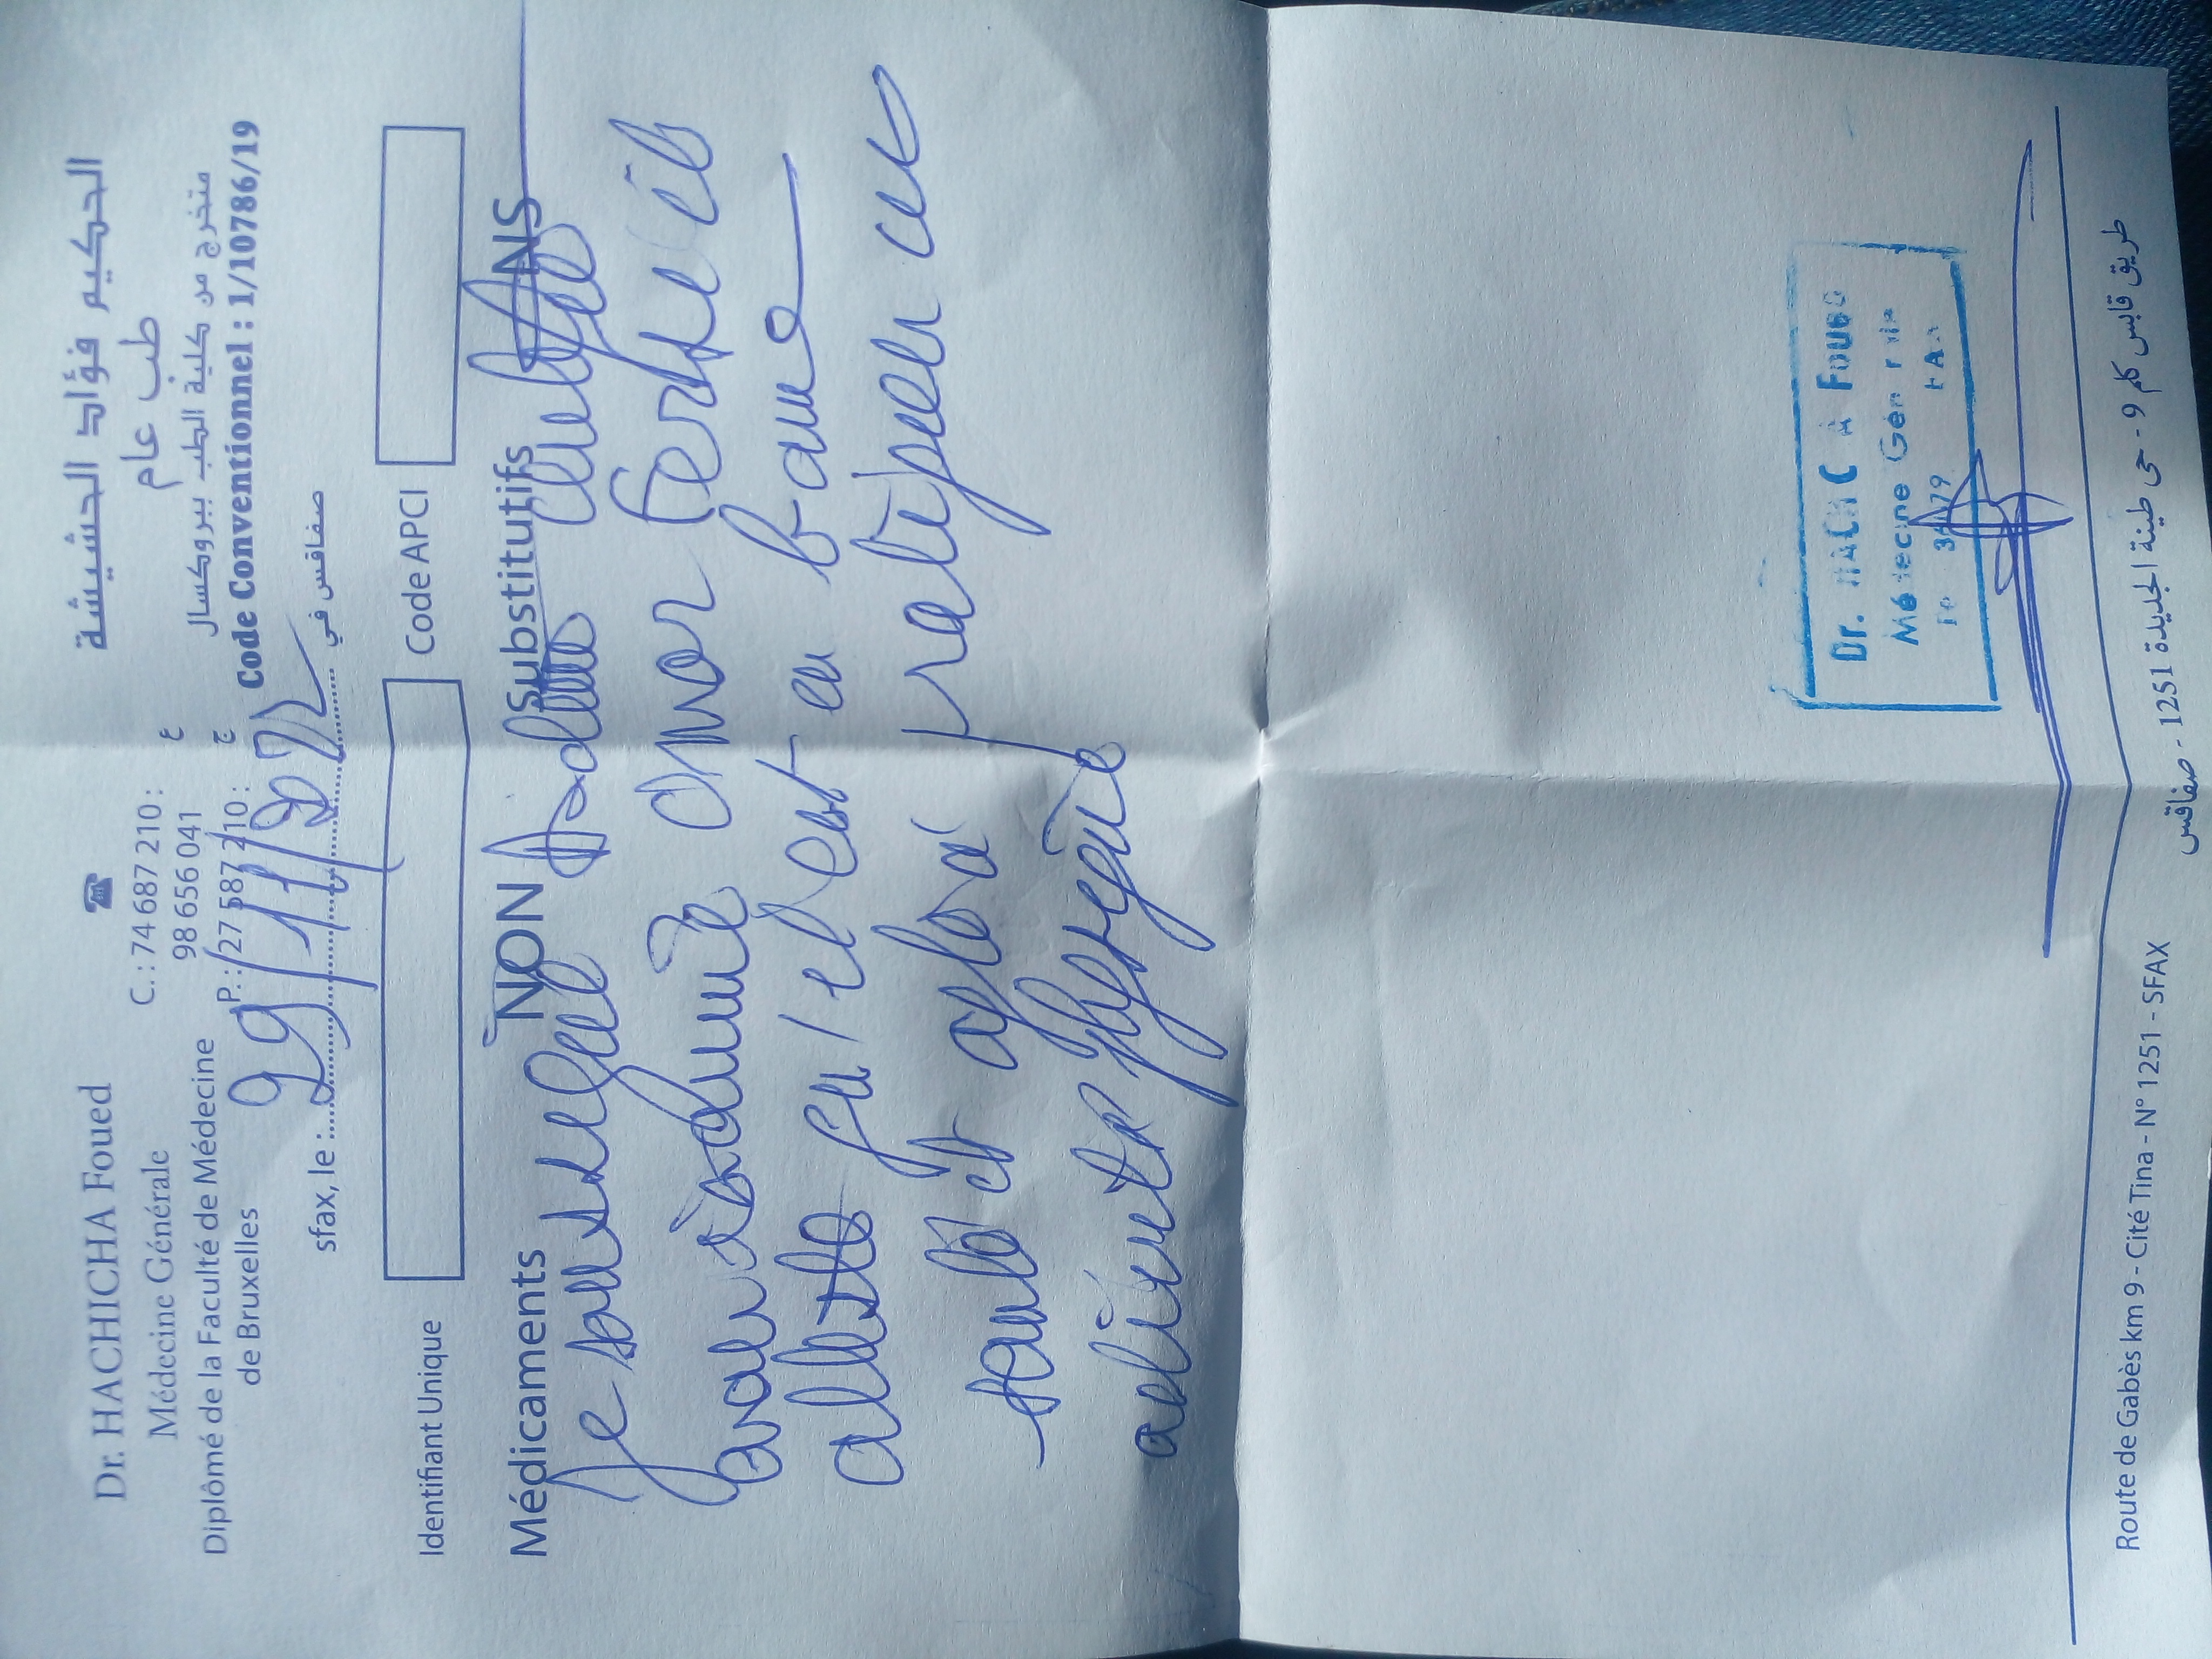 Dr. HACHICHA Foued
Médecine Générale
Diplômé de la Faculté de Médecine
de Bruxelles
☎
C. : 74 687 210 : ع
98 656 041
P. : 27 587 210 : ج
الحكيم فؤاد الحشيشة
طب عام
متخرج من كلية الطب ببروكسال
Code Conventionnel : 1/10786/19
sfax, le : 29/11/2022 صفاقس في
Identifiant Unique
Code APCI
Médicaments NON Substitutifs ANS
Je soussigné
avoir examiné Omor
atteste que / il est en bonne
santé et apte à pratiquer une
activité physique
Dr. HACHICHA Foued
Médecine Générale
طريق قابس كلم 9 - حي طينة الجديدة 1251 - صفاقس
Route de Gabès km 9 - Cité Tina - N° 1251 - SFAX